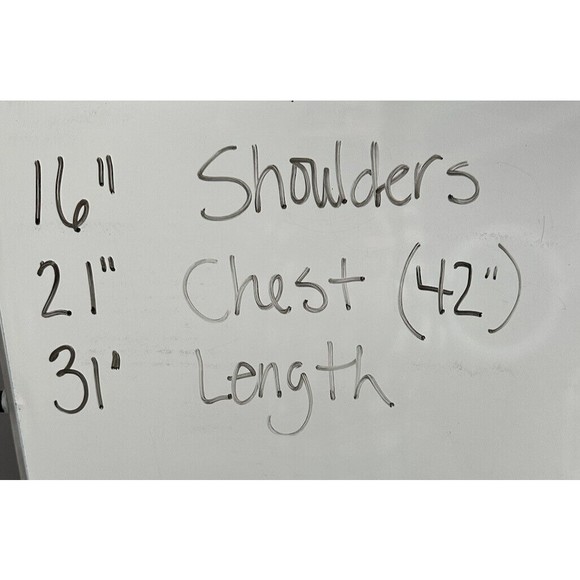 16" Shoulders
21" Chest (42")
31" Length